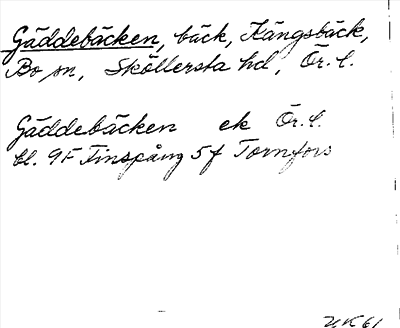 Gäddebäcken, bäck, Kängsbäck,
Bo sn, Sköllersta hd, Ör. l.
Gäddebäcken ek Ör. l.
bl. 9F Finspång 5f Tornfors